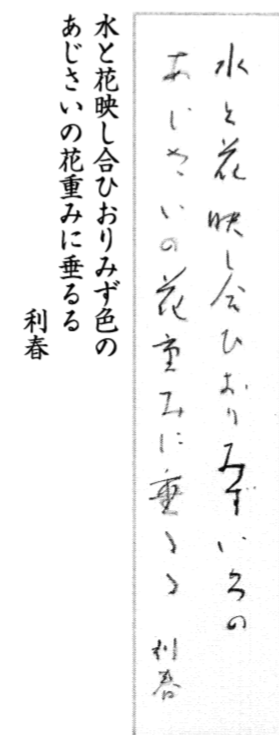 水と花映し合ひおりみずいろの
あじさいの花重みに垂るる
利春
水と花映し合ひおりみず色の
あじさいの花重みに垂るる
利春